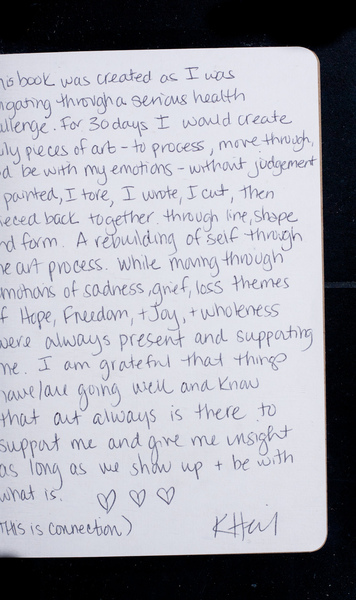 his book was created as I was
igating through a serious health
allenge. For 30 days I would create
ily pieces of art - to process, move through,
d be with my emotions - without judgement
painted, I tore, I wrote, I cut, then
ieced back together. through line, shape
nd form. A rebuilding of self through
he art process. While moving through
motions of sadness, grief, loss themes
f Hope, Freedom, + Joy, + wholeness
were always present and supporting
me. I am grateful that things
have/are going well and know
that art always is there to
support me and give me insight
as long as we show up + be with
what is. ♡ ♡ ♡
(THIS is connection)